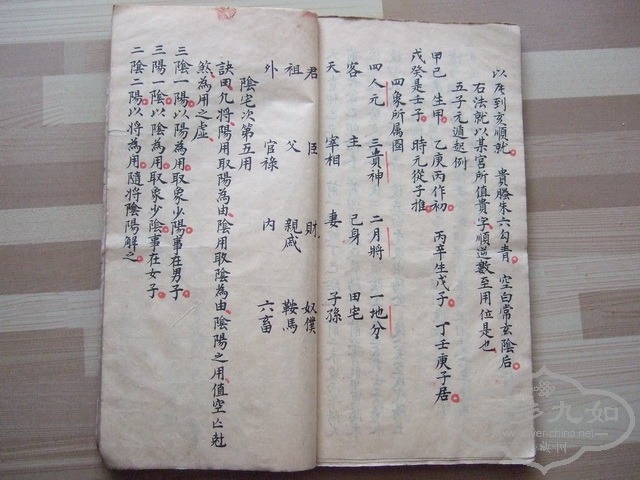 以戌到亥順就　貴螣朱六勾青　空白常玄陰后
右法就以某宮所值貴字順逆數至用位是也
五子元遁起例
甲己　生甲　乙庚丙作初　丙辛生戊子　丁壬庚子居
戊癸是壬子　時元從子推
四象所属圖
四人元　三貴神　二月將　一地分
客　主　己身　田宅
天　宰相　妻　子孫
君　臣　財　奴僕
祖　父　親戚　鞍馬
外　官祿　内　六畜
陰宅次第五用
訣曰凡將陽用取陽為由陰用取陰為由陰陽之用值空亡尅
煞為用之虚
三陰一陽以陽為用取象少陽事在男子
三陽一陰以陰為用取象少陰事在女子
二陰二陽以將為用隨將陰陽解之
九如
www.silver-china.net